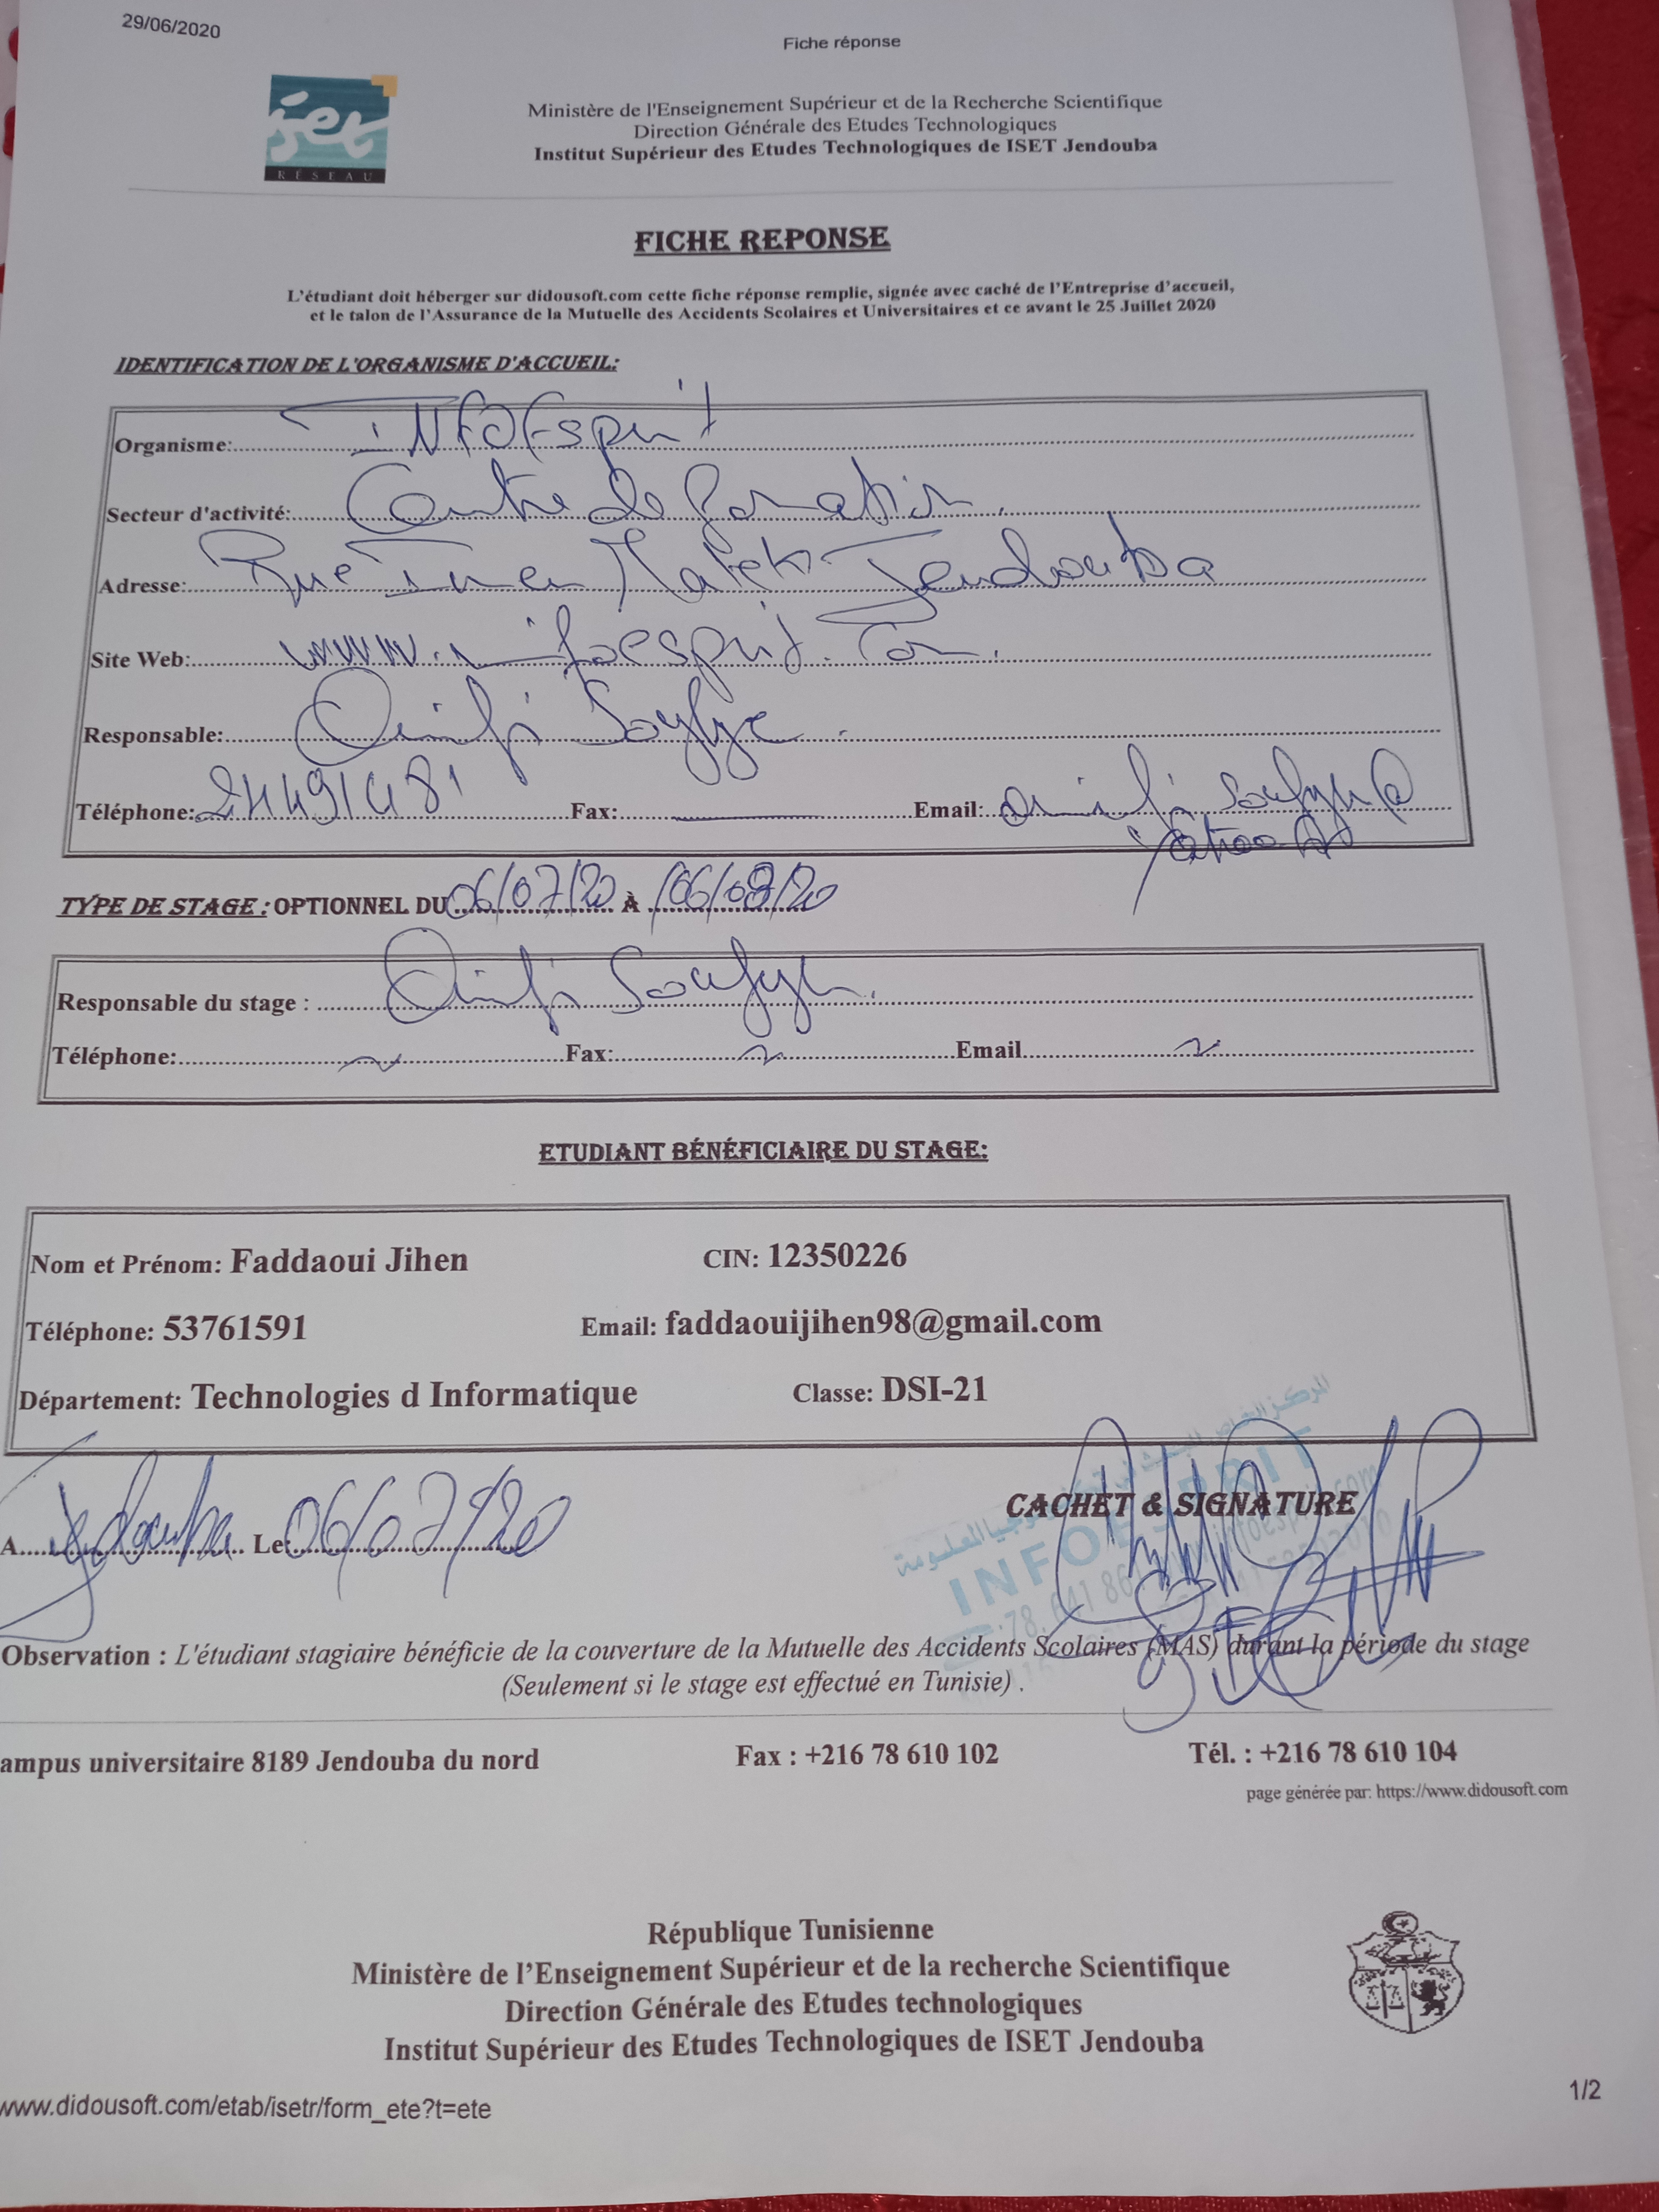 29/06/2020
Fiche réponse
iset
RÉSEAU
Ministère de l'Enseignement Supérieur et de la Recherche Scientifique
Direction Générale des Etudes Technologiques
Institut Supérieur des Etudes Technologiques de ISET Jendouba
FICHE REPONSE
L'étudiant doit héberger sur didousoft.com cette fiche réponse remplie, signée avec caché de l'Entreprise d'accueil,
et le talon de l'Assurance de la Mutuelle des Accidents Scolaires et Universitaires et ce avant le 25 Juillet 2020
IDENTIFICATION DE L'ORGANISME D'ACCUEIL:
Organisme: INFOEsprit
Secteur d'activité: Centre de formation
Adresse: Rue Malek Jendouba
Site Web: www.infoesprit.com
Responsable:
Téléphone: Fax: Email:
TYPE DE STAGE : OPTIONNEL DU 06/07/20 À 06/08/20
Responsable du stage :
Téléphone: Fax: Email
ETUDIANT BÉNÉFICIAIRE DU STAGE:
Nom et Prénom: Faddaoui Jihen CIN: 12350226
Téléphone: 53761591 Email: faddaouijihen98@gmail.com
Département: Technologies d Informatique Classe: DSI-21
CACHET & SIGNATURE
A Jendouba Le 06/07/20
INFOESPRIT
Observation : L'étudiant stagiaire bénéficie de la couverture de la Mutuelle des Accidents Scolaires (MAS) durant la période du stage
(Seulement si le stage est effectué en Tunisie) .
ampus universitaire 8189 Jendouba du nord Fax : +216 78 610 102 Tél. : +216 78 610 104
page générée par: https://www.didousoft.com
République Tunisienne
Ministère de l'Enseignement Supérieur et de la recherche Scientifique
Direction Générale des Etudes technologiques
Institut Supérieur des Etudes Technologiques de ISET Jendouba
www.didousoft.com/etab/isetr/form_ete?t=ete
1/2